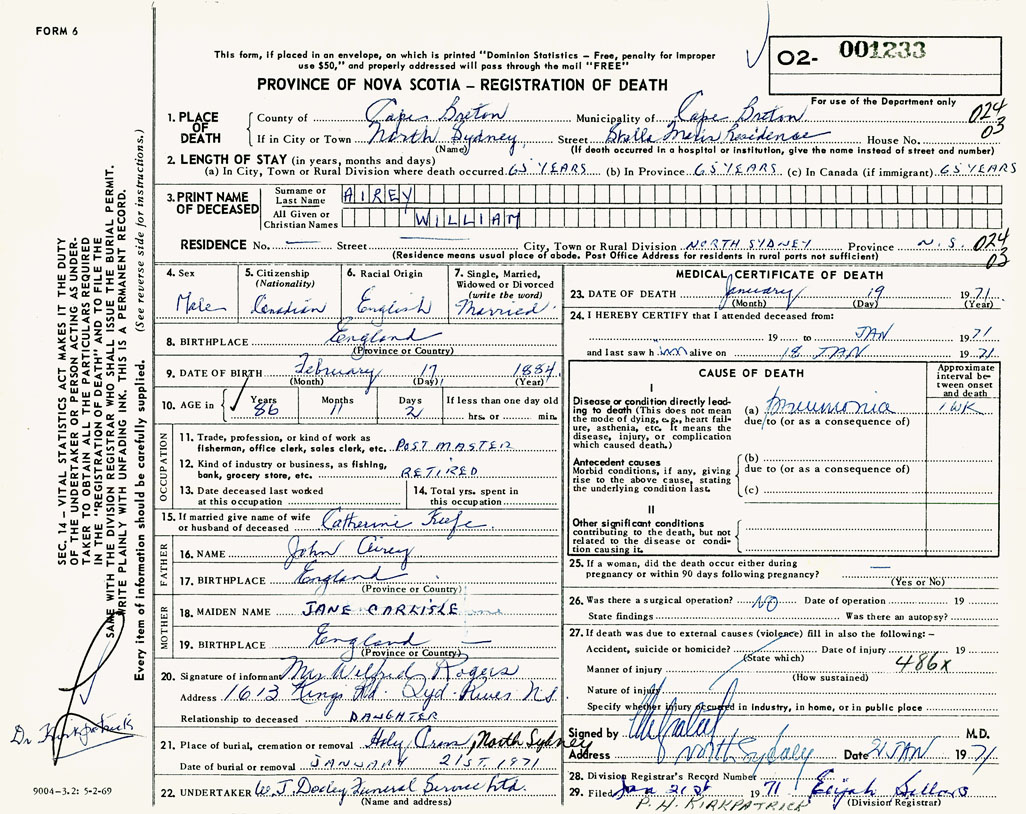 FORM 6
This form, if placed in an envelope, on which is printed "Dominion Statistics – Free, penalty for improper
use $50," and properly addressed will pass through the mail "FREE"
O2- 001233
PROVINCE OF NOVA SCOTIA – REGISTRATION OF DEATH
For use of the Department only
024
03
1. PLACE OF DEATH
County of Cape Breton Municipality of Cape Breton
If in City or Town North Sydney Street Stella Maris Residence House No.
(Name) (If death occurred in a hospital or institution, give the name instead of street and number)
2. LENGTH OF STAY (in years, months and days)
(a) In City, Town or Rural Division where death occurred 65 YEARS (b) In Province 65 YEARS (c) In Canada (if immigrant) 65 YEARS
3. PRINT NAME OF DECEASED
Surname or Last Name AIREY
All Given or Christian Names WILLIAM
RESIDENCE No. — Street — City, Town or Rural Division NORTH SYDNEY Province N.S. 024
(Residence means usual place of abode. Post Office Address for residents in rural parts not sufficient) 03
4. Sex
Male
5. Citizenship
(Nationality)
Canadian
6. Racial Origin
English
7. Single, Married,
Widowed or Divorced
(write the word)
Married
8. BIRTHPLACE England
(Province or Country)
9. DATE OF BIRTH February 17 1884
(Month) (Day) (Year)
10. AGE in Years 86 Months 11 Days 2 If less than one day old
hrs. or min.
OCCUPATION
11. Trade, profession, or kind of work as
fisherman, office clerk, sales clerk, etc. POST MASTER
12. Kind of industry or business, as fishing,
bank, grocery store, etc. RETIRED
13. Date deceased last worked
at this occupation
14. Total yrs. spent in
this occupation
15. If married give name of wife
or husband of deceased Catherine Keefe
FATHER
16. NAME John Airey
17. BIRTHPLACE England
(Province or Country)
MOTHER
18. MAIDEN NAME JANE CARLISLE
19. BIRTHPLACE England
(Province or Country)
20. Signature of informant Mrs Wilfred Rogers
Address 1613 Kings Rd. Syd. River N.S.
Relationship to deceased DAUGHTER
21. Place of burial, cremation or removal Holy Cross, North Sydney
Date of burial or removal JANUARY 21ST, 1971
22. UNDERTAKER W. J. Dooley Funeral Service Ltd.
(Name and address)
MEDICAL CERTIFICATE OF DEATH
23. DATE OF DEATH January 19 1971
(Month) (Day) (Year)
24. I HEREBY CERTIFY that I attended deceased from:
19 to JAN 1971
and last saw him alive on 18 JAN 1971
CAUSE OF DEATH
Approximate
interval be-
tween onset
and death
I
Disease or condition directly lead-
ing to death (This does not mean
the mode of dying, e.g., heart fail-
ure, asthenia, etc. It means the
disease, injury, or complication
which caused death.)
(a) Pneumonia 1 WK
due to (or as a consequence of)
Antecedent causes
Morbid conditions, if any, giving
rise to the above cause, stating
the underlying condition last.
(b)
due to (or as a consequence of)
(c)
II
Other significant conditions
contributing to the death, but not
related to the disease or condi-
tion causing it.
25. If a woman, did the death occur either during
pregnancy or within 90 days following pregnancy? —
(Yes or No)
26. Was there a surgical operation? NO Date of operation 19
State findings Was there an autopsy?
27. If death was due to external causes (violence) fill in also the following:–
Accident, suicide or homicide? Date of injury 19
(State which)
486X
Manner of injury
(How sustained)
Nature of injury
Specify whether injury occurred in industry, in home, or in public place
Signed by M.D.
Address North Sydney Date 21 JAN 1971
28. Division Registrar's Record Number
29. Filed Jan 21st 1971
P. H. KIRKPATRICK (Division Registrar)
SEC. 14 – VITAL STATISTICS ACT MAKES IT THE DUTY
OF THE UNDERTAKER OR PERSON ACTING AS UNDER-
TAKER TO OBTAIN ALL THE PARTICULARS REQUIRED
IN THE "REGISTRATION OF DEATH" AND TO FILE THE
SAME WITH THE DIVISION REGISTRAR WHO SHALL ISSUE THE BURIAL PERMIT.
WRITE PLAINLY WITH UNFADING INK. THIS IS A PERMANENT RECORD.
Every item of information should be carefully supplied. (See reverse side for instructions.)
Dr Kirkpatrick
9004-3.2: 5-2-69